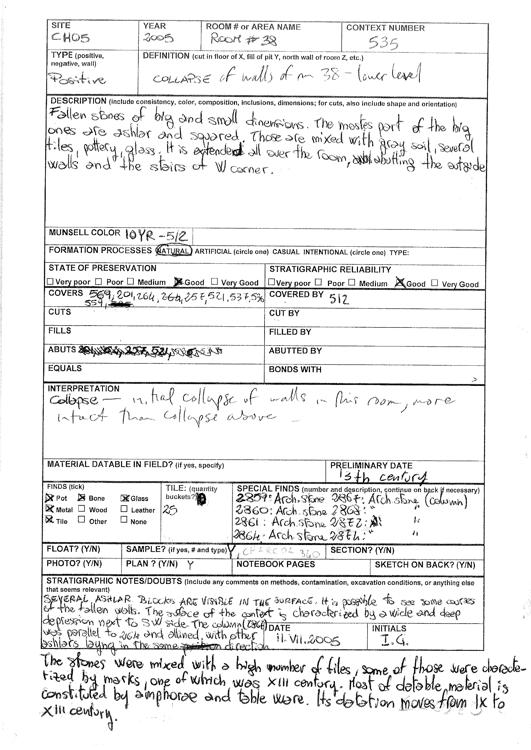 SITE YEAR ROOM # or AREA NAME CONTEXT NUMBER
CH05 2005 ROOM # 38 535
TYPE (positive, negative, wall) DEFINITION (cut in floor of X, fill of pit Y, north wall of room Z, etc.)
Positive COLLAPSE of walls of rm 38 – lower level
DESCRIPTION (include consistency, color, composition, inclusions, dimensions; for cuts, also include shape and orientation)
Fallen stones of big and small dimensions. The mostes part of the big
ones are ashlar and squared. Those are mixed with gray soil, several
tiles, pottery, glass. It is extended all over the room, abutting the outside
walls and the stairs of W corner.
MUNSELL COLOR 10YR-5/2
FORMATION PROCESSES NATURAL ARTIFICIAL (circle one) CASUAL INTENTIONAL (circle one) TYPE:
STATE OF PRESERVATION STRATIGRAPHIC RELIABILITY
Very poor Poor Medium Good Very Good Very poor Poor Medium Good Very Good
COVERS 201, 264, 257, 521, 537, COVERED BY 512
CUTS CUT BY
FILLS FILLED BY
ABUTS ABUTTED BY
EQUALS BONDS WITH
INTERPRETATION
Collapse – initial collapse of walls in this room, more
intact than collapse above –
MATERIAL DATABLE IN FIELD? (if yes, specify) PRELIMINARY DATE
13th century
FINDS (tick) TILE: (quantity buckets?) SPECIAL FINDS (number and description, continue on back if necessary)
Pot Bone Glass 25 2859: Arch. stone 2867: Arch. stone (column)
Metal Wood Leather 2860: Arch. stone 2868: "
Tile Other None 2861: Arch. stone 2872: "
2864: Arch. stone 2874: "
FLOAT? (Y/N) SAMPLE? (if yes, # and type) Y, CHARCOAL 360 SECTION? (Y/N)
PHOTO? (Y/N) PLAN? (Y/N) Y NOTEBOOK PAGES SKETCH ON BACK? (Y/N)
STRATIGRAPHIC NOTES/DOUBTS (Include any comments on methods, contamination, excavation conditions, or anything else that seems relevant)
SEVERAL ASHLAR BLOCKS ARE VISIBLE IN THE SURFACE. It is possible to see some courses
of the fallen walls. The surface of the context is characterized by a wide and deep
depression next to SW side. The column (2867)
was parallel to 264 and allined, with other
ashlars laying in the same direction.
DATE 11.VII.2005 INITIALS I.G.
The stones were mixed with a high number of tiles, some of those were characte-
rized by marks, one of which was XIII century. Most of datable material is
constituted by amphorae and table ware. Its datation moves from IX to
XIII century.